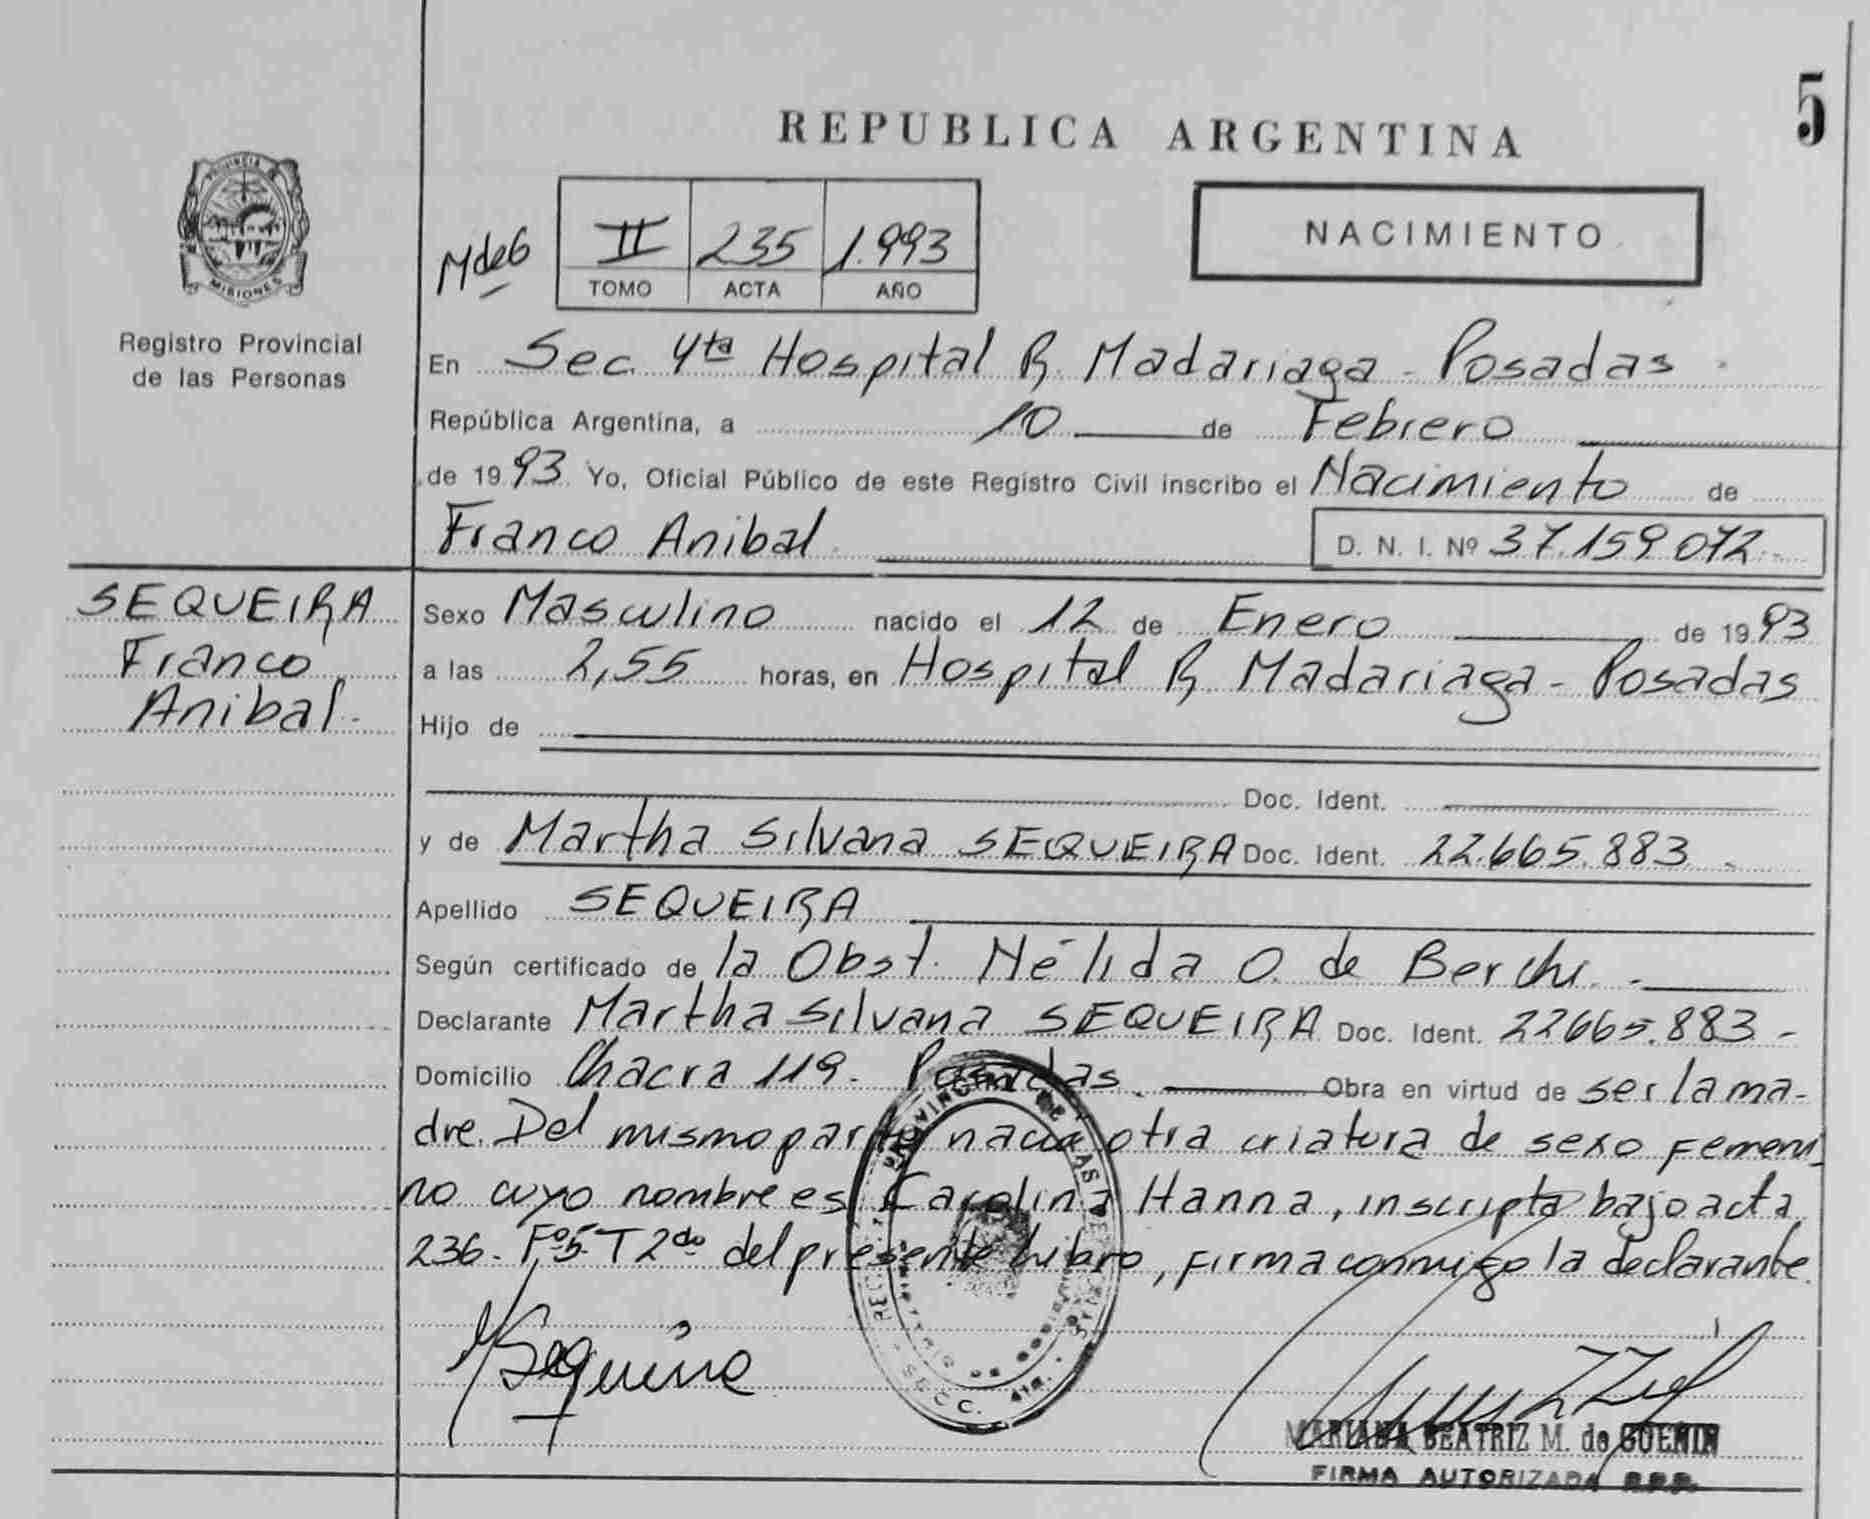 5
REPUBLICA ARGENTINA
PROVINCIA
MISIONES
Registro Provincial
de las Personas
MdeG
II 235 1.993
TOMO ACTA AÑO
NACIMIENTO
En Sec. 4ta Hospital R. Madariaga - Posadas -
República Argentina, a 10 de Febrero
de 1993 Yo, Oficial Público de este Registro Civil inscribo el Nacimiento de
Franco Anibal D. N. I. Nº 37.159.072.-
SEQUEIRA
Franco
Anibal.-
Sexo Masculino nacido el 12 de Enero de 1993
a las 2,55 horas, en Hospital R. Madariaga - Posadas
Hijo de
Doc. Ident.
y de Martha Silvana SEQUEIRA Doc. Ident. 22.665.883 -
Apellido SEQUEIRA
Según certificado de la Obst. Nélida O. de Berchi.-
Declarante Martha Silvana SEQUEIRA Doc. Ident. 22665.883 -
Domicilio Chacra 119. Posadas. Obra en virtud de ser la ma-
dre. Del mismo parto nacio otra criatura de sexo femeni-
no cuyo nombre es Carolina Hanna, inscripta bajo acta
236- Fº5- T 2do del presente libro, firma conmigo la declarante.
MSequeira
PROVINCIAL DE LAS
SECC. 4ta.
MARIANA BEATRIZ M. de GUENIN
FIRMA AUTORIZADA R.P.P.